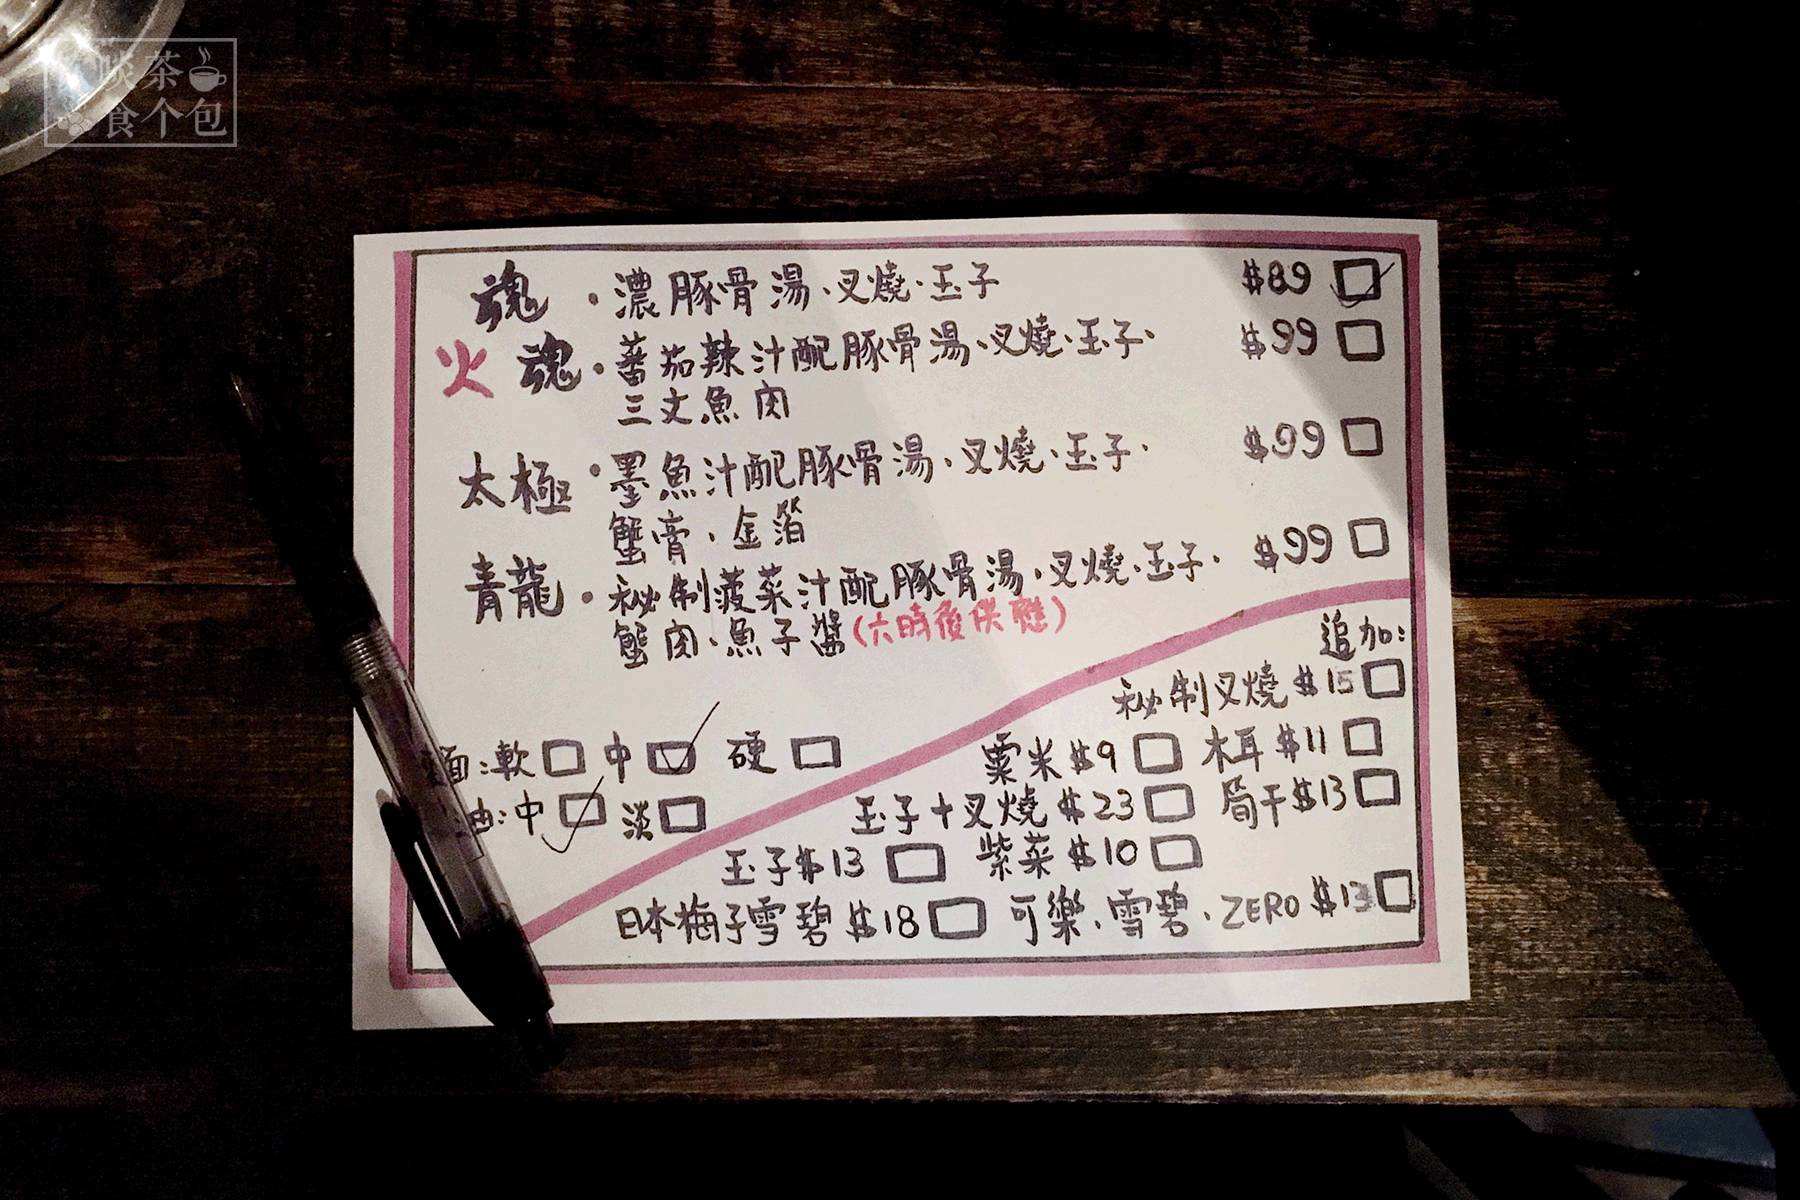 啖茶
食个包
魂・濃豚骨湯、叉燒、玉子 $89
火魂・蕃茄辣汁配豚骨湯、叉燒、玉子、 $99
三文魚肉
太極・墨魚汁配豚骨湯、叉燒、玉子、 $99
蟹膏、金箔
青龍・秘制菠菜汁配豚骨湯、叉燒、玉子、 $99
蟹肉、魚子醬(六時後供應)
追加:
秘制叉燒 $15
麵:軟 中 硬
粟米 $9 木耳 $11
油:中 淡
玉子+叉燒 $23 筍干 $13
玉子 $13 紫菜 $10
日本梅子雪碧 $18 可樂、雪碧、ZERO $13